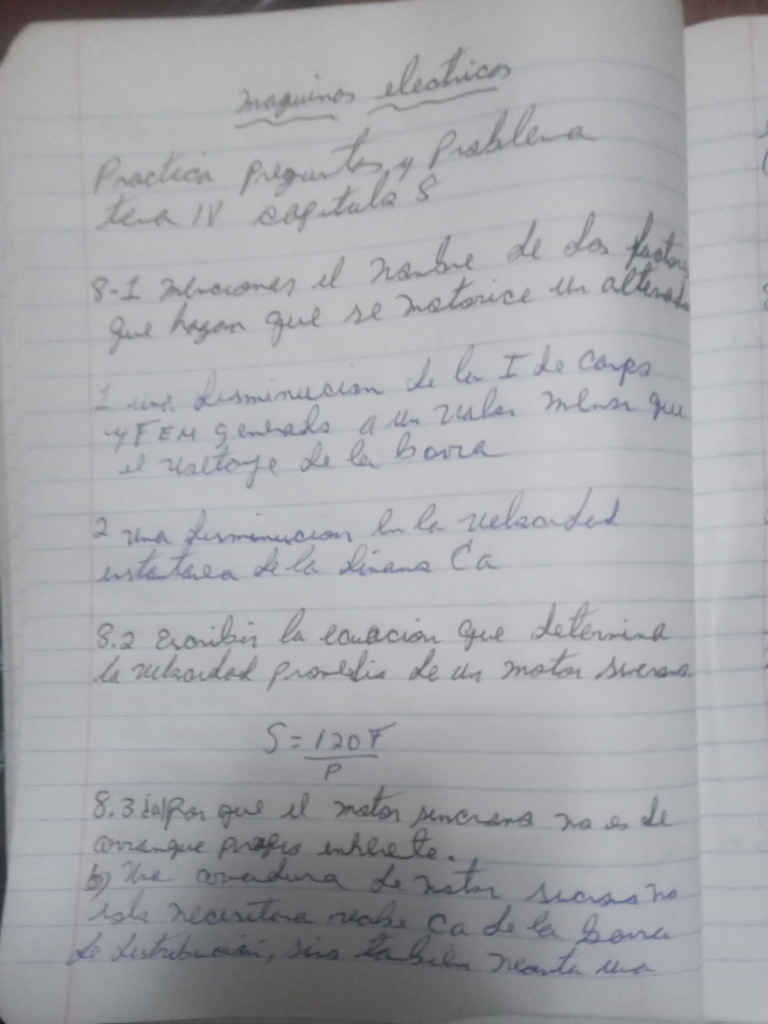 maquinas electricas
Practica preguntas y Problema
tema IV capitulo 8
8-1 menciones el nombre de dos factores
que hagan que se motorice un alternado
1 una disminucion de la I de campo
y FEM generada a un valor menor que
el voltaje de la barra
2 una disminucion en la velocidad
instantanea de la dinamo Ca
8.2 Escribir la ecuacion que determina
la velocidad promedio de un motor sincrono.
S = 120F
P
8.3 (a) Por que el motor sincrono no es de
arranque propio inherente.
b) Una armadura de motor sincrono no
solo necesitara recibe Ca de la barra
de distribución, sino tambien necesita una